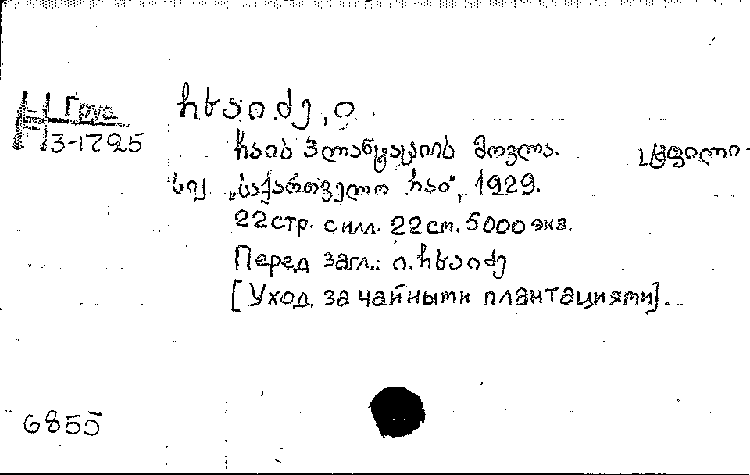 Груз
3-1795
ჩხაიძე, ი.
ჩაის პლანტაციის მოვლა. სტფილი-
სი, „საქართველოს ჩაი“, 1929.
22 стр. с илл. 22 см. 5000 экз.
Перед загл.: ი. ჩხაიძე
[Уход за чайными плантациями].
6855